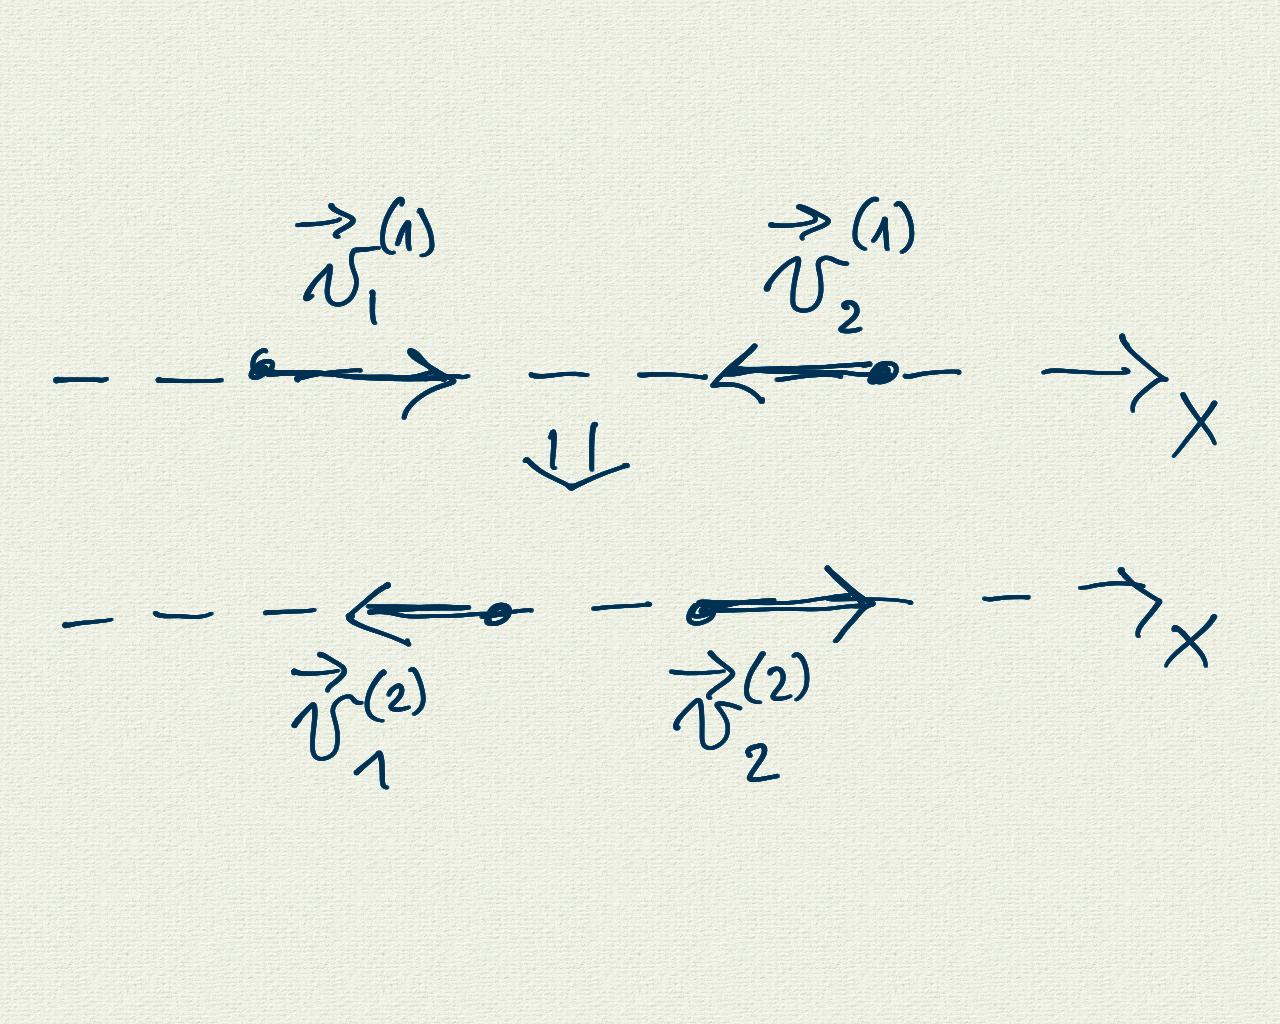 v⃗₁⁽¹⁾ v⃗₂⁽¹⁾
X
v⃗₁⁽²⁾ v⃗₂⁽²⁾
X